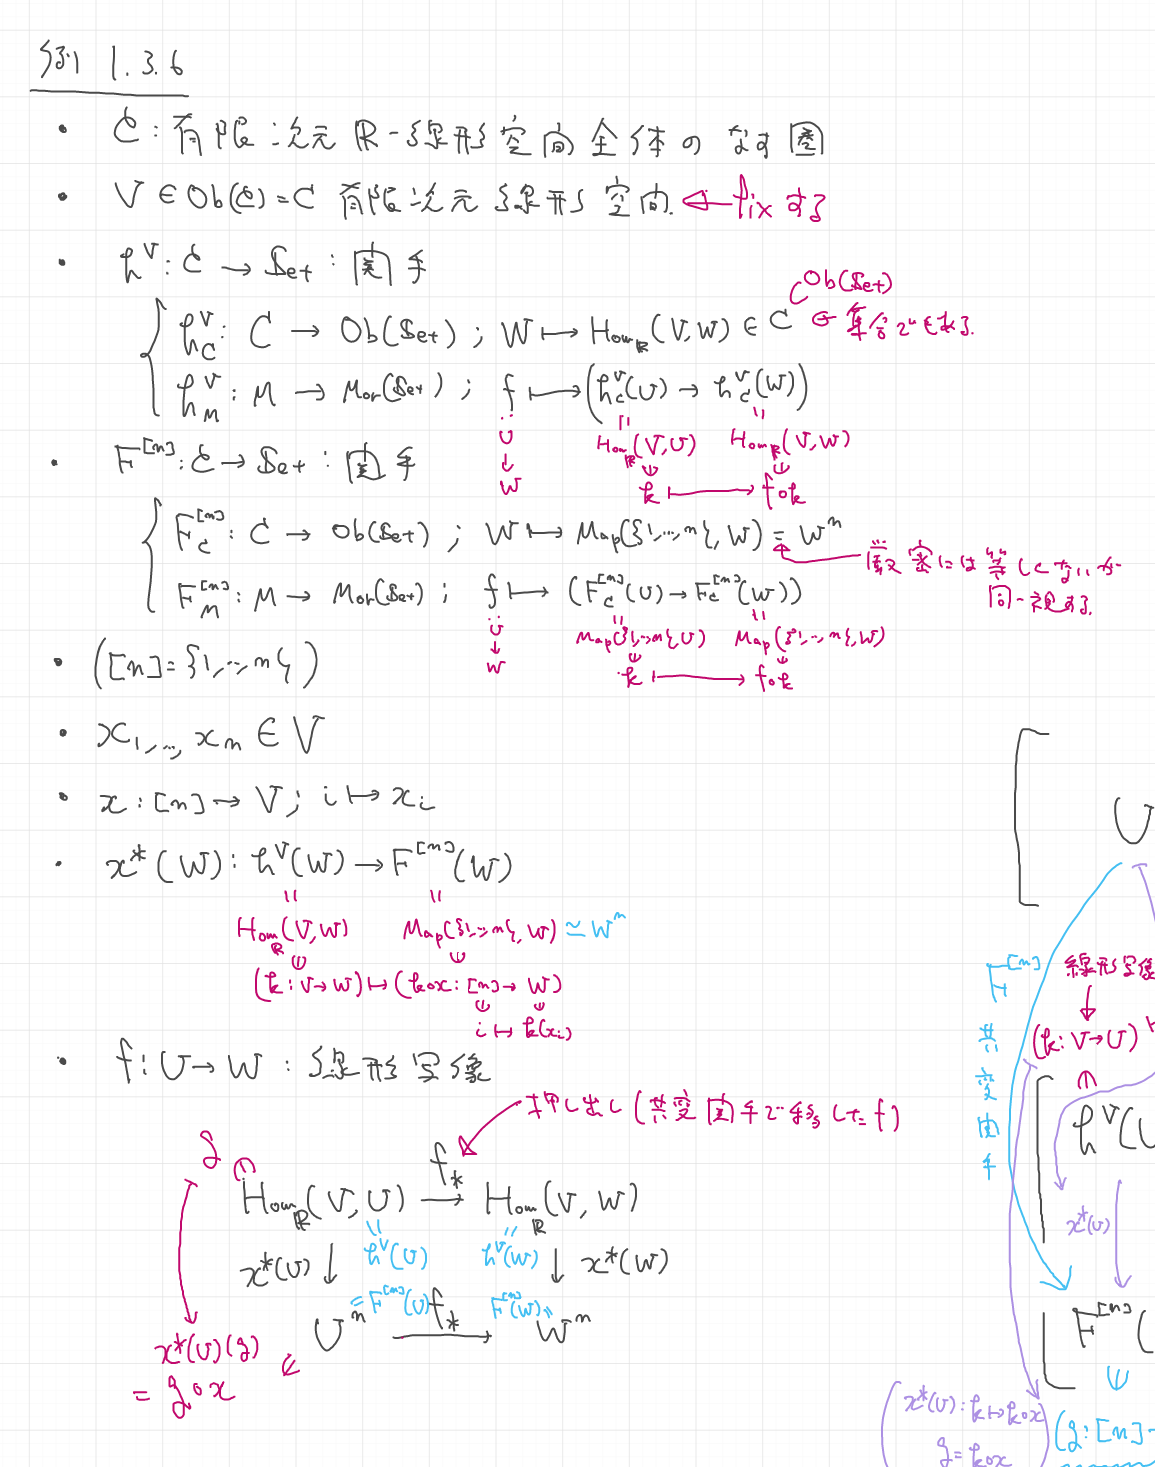 例 1.3.6
・ C : 有限次元 R-線形空間全体のなす圏
・ V ∈ Ob(C) = C 有限次元線形空間. ← fixする
・ h^V : C → Set : 関手
h^V_C : C → Ob(Set) ; W ↦ Hom_R(V, W) ∈ C ← 集合でもある.
Ob(Set)
h^V_M : M → Mor(Set) ; f ↦ (h^V_C(U) → h^V_C(W))
U → W
Hom_R(V, U) Hom_R(V, W)
k ↦ f∘k
・ F^[n] : C → Set : 関手
F^[n]_C : C → Ob(Set) ; W ↦ Map({1,…,n}, W) = W^n
厳密には等しくないが
同一視する.
F^[n]_M : M → Mor(Set) ; f ↦ (F^[n]_C(U) → F^[n]_C(W))
U → W
Map({1,…,n}, U) Map({1,…,n}, W)
k ↦ f∘k
・ ([n] = {1,…,n})
・ x_1, …, x_n ∈ V
・ x : [n] → V ; i ↦ x_i
・ x*(W) : h^V(W) → F^[n](W)
Hom_R(V, W) Map({1,…,n}, W) ≃ W^n
(k : V → W) ↦ (k∘x : [n] → W)
i ↦ k(x_i)
・ f : U → W : 線形写像
押し出し (共変関手で移した f)
g
f_*
Hom_R(V, U) → Hom_R(V, W)
h^V(U) h^V(W)
x*(U) ↓ ↓ x*(W)
= F^[n](U) f_* F^[n](W) =
U^n → W^n
x*(U)(g)
= g∘x
U
F^[n]
共変関手
線形写像
(k : V → U) ↦
h^V(U
x*(U)
F^[n](
x*(U) : k ↦ k∘x
g = k∘x
(g : [n] →